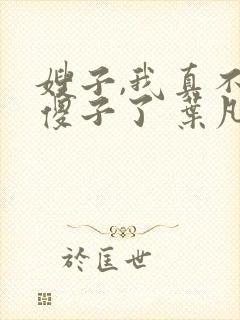 嫂子,我真不
傻子了 葉凡
於匡世